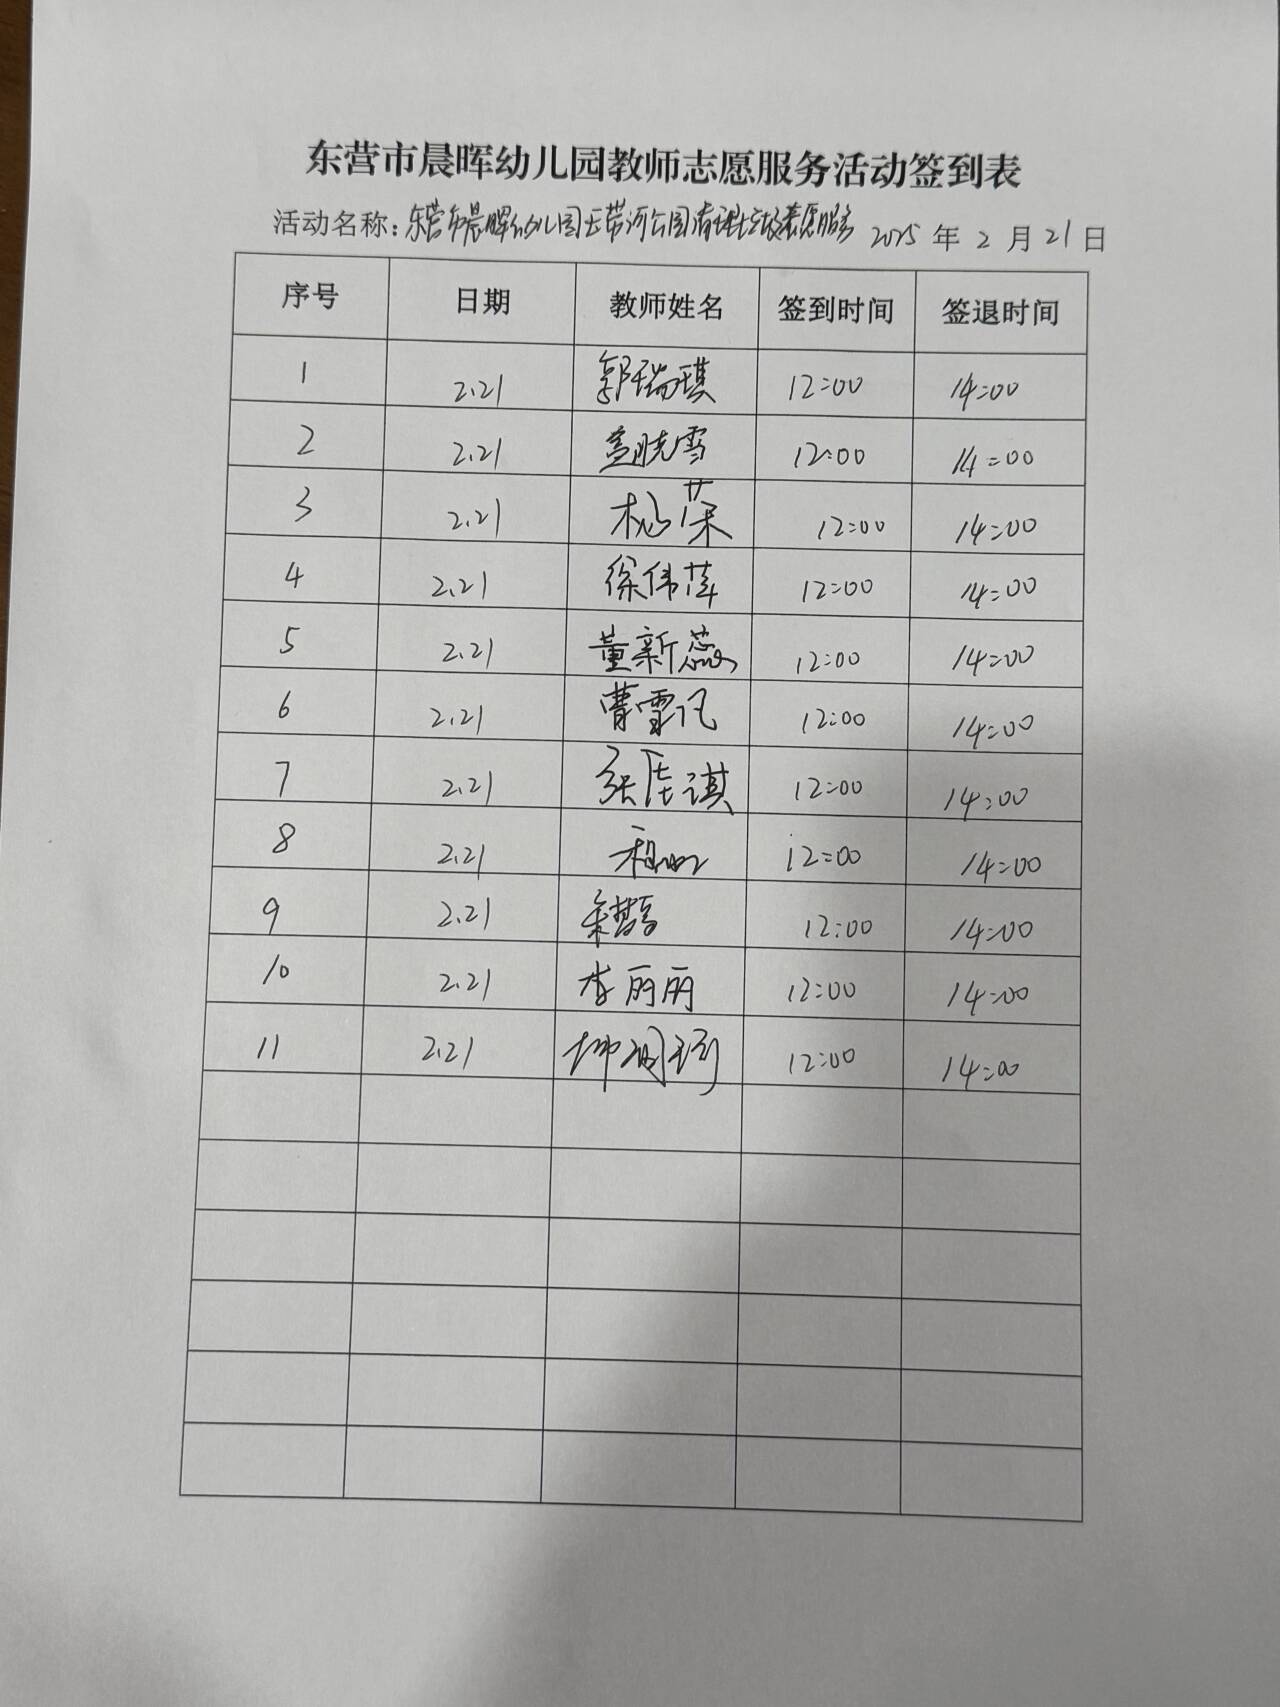 东营市晨晖幼儿园教师志愿服务活动签到表
活动名称：东营市晨晖幼儿园玉带河公园清理垃圾志愿服务 2025年2月21日
序号 日期 教师姓名 签到时间 签退时间
1 2.21 郭瑞琪 12:00 14:00
2 2.21 盖晓雪 12:00 14:00
3 2.21 杨荣 12:00 14:00
4 2.21 徐伟萍 12:00 14:00
5 2.21 董新蕊 12:00 14:00
6 2.21 曹雪凡 12:00 14:00
7 2.21 张 琪 12:00 14:00
8 2.21 12:00 14:00
9 2.21 12:00 14:00
10 2.21 李丽丽 12:00 14:00
11 2.21 12:00 14:00